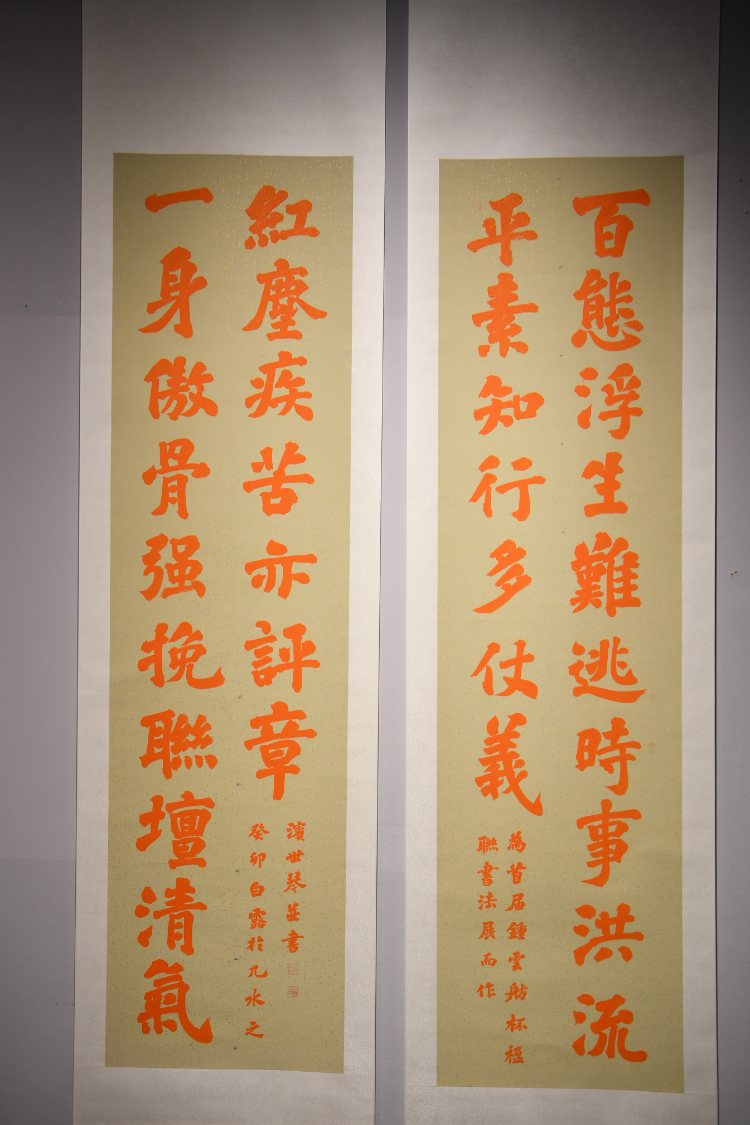 百態浮生難逃時事洪流
平素知行多仗義
為首届鍾雲舫杯楹
聯書法展而作
一身傲骨强挽聯壇清氣
紅塵疾苦亦評章
癸卯白露於几水之
濱世琴並書